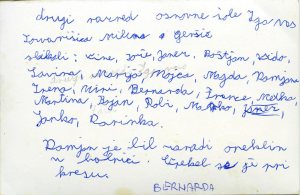 drugi razred osnovne šole Iga vas
tovarišica Milena z Geršič
slikali: Kine, Jože, Janez, Boštjan, Vido,
Lavina, Marija, Mojca, Magda, Damjana
Irena, Mimi, Bernarda, France, Metka
Martina, Bojan, Robi, Marko,
Janko, Darinka.
Damjan je bil zaradi oreklin
v bolnici. Uzekel se je pri
kresu.
BERNARDA